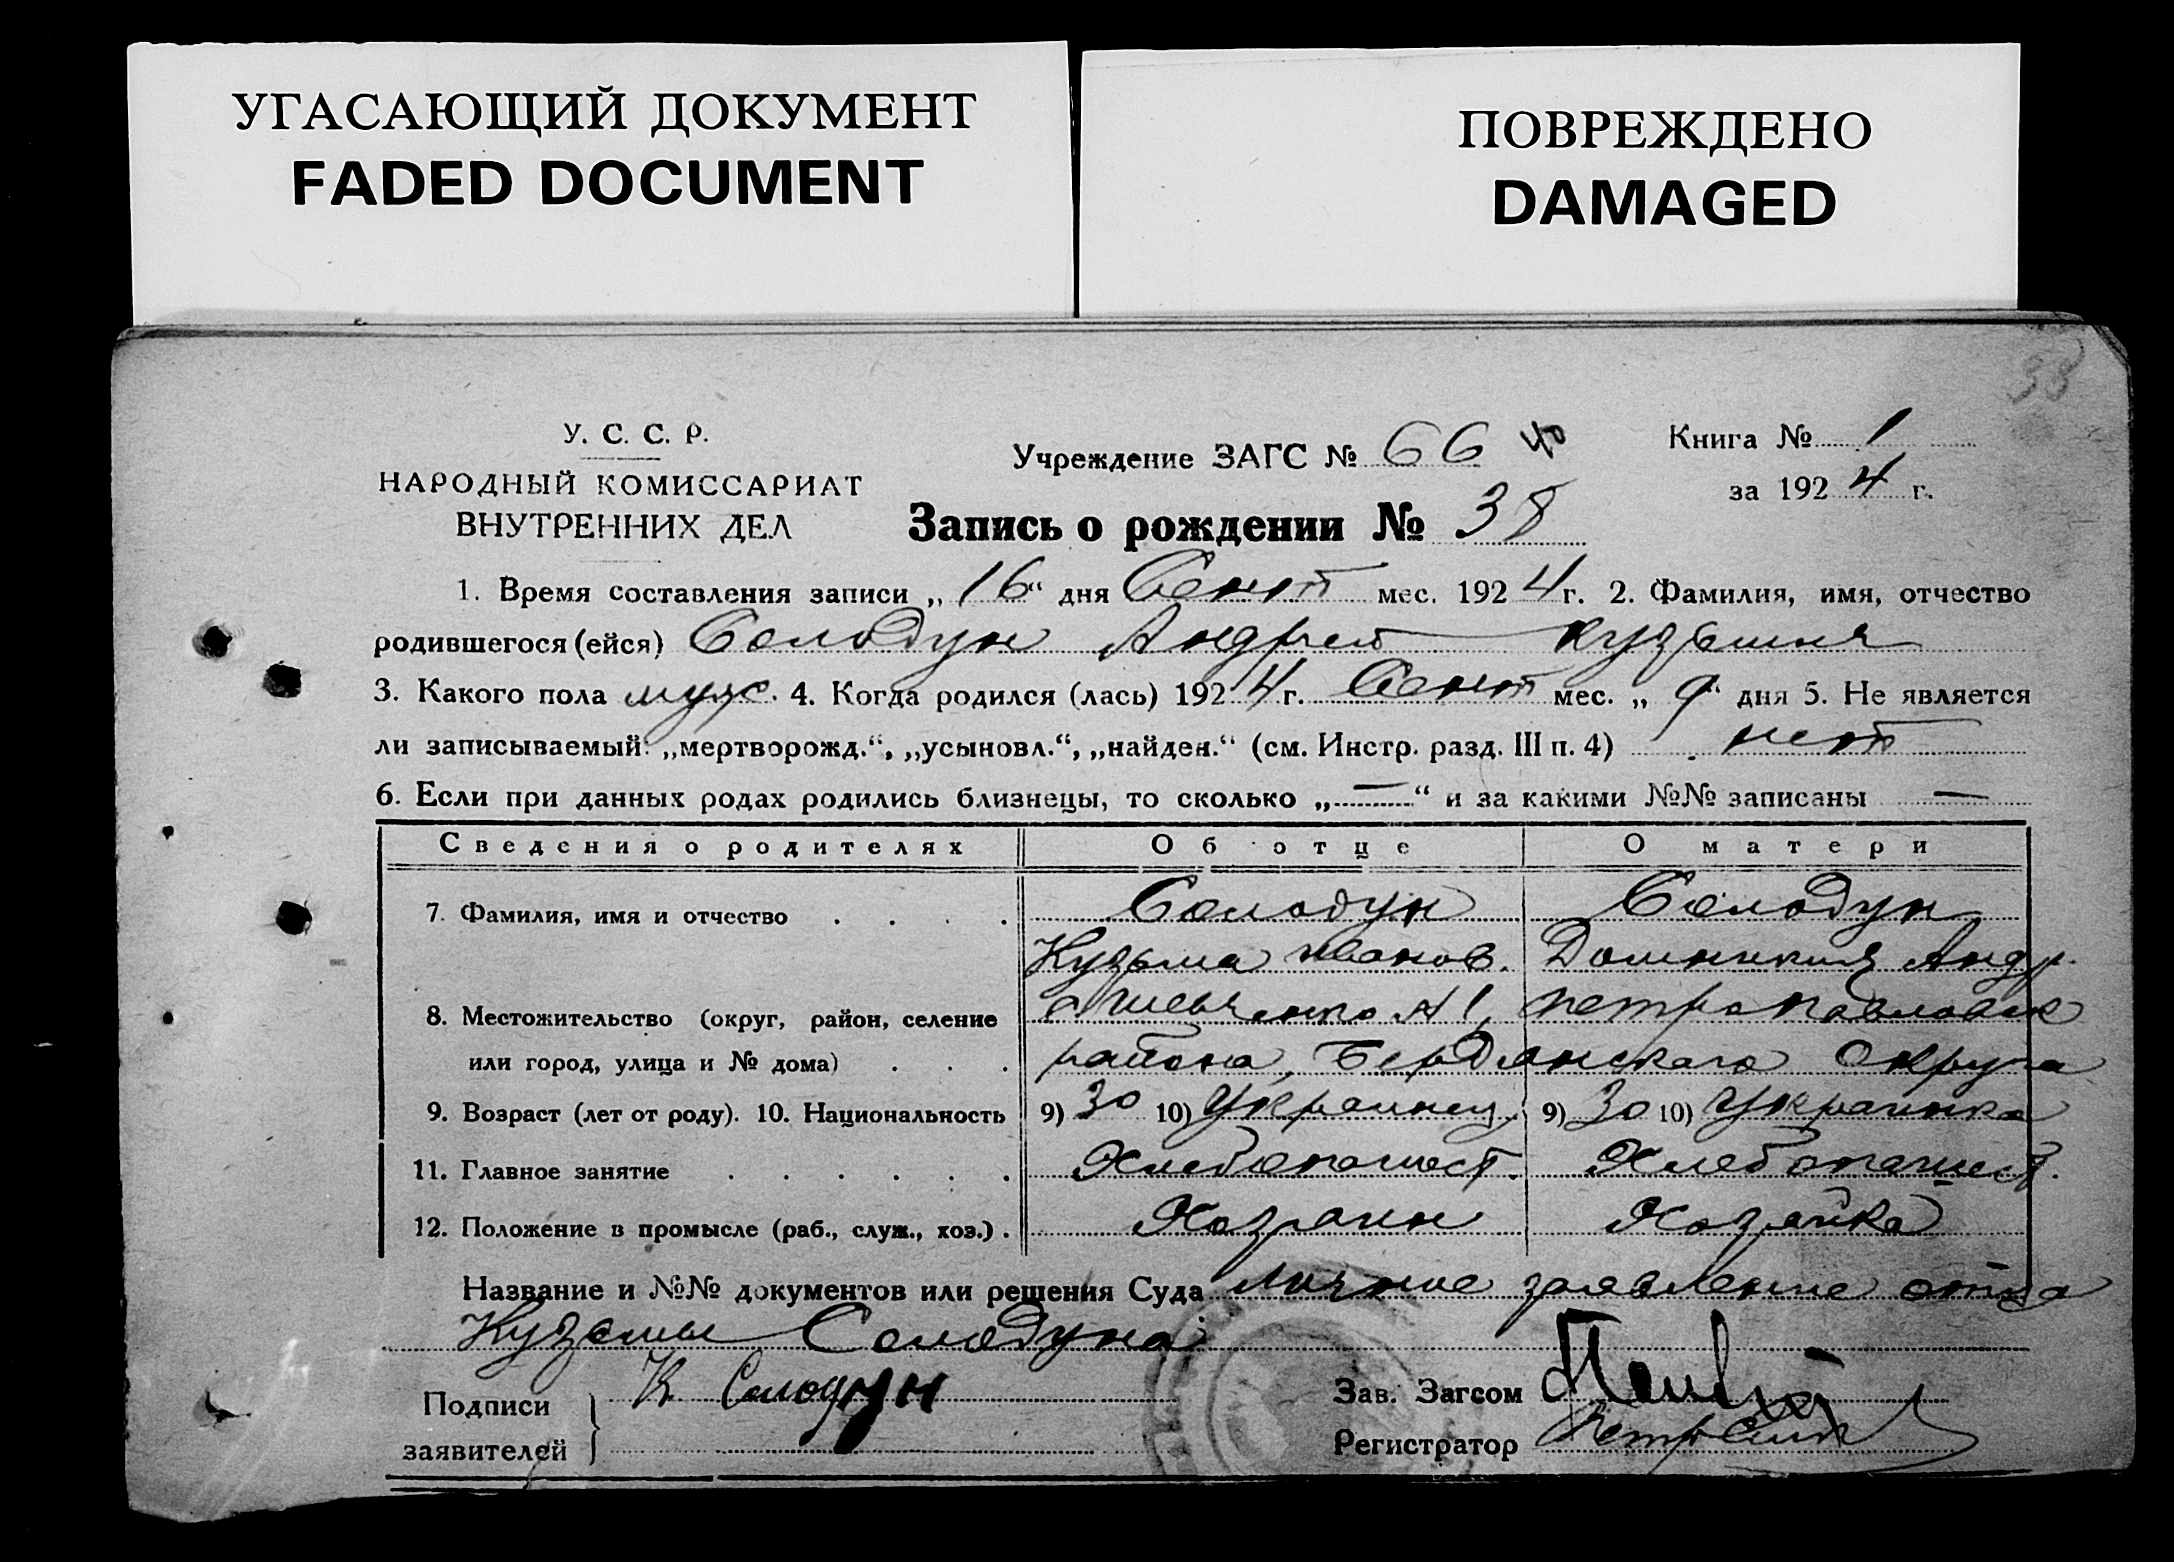 УГАСАЮЩИЙ ДОКУМЕНТ
FADED DOCUMENT
ПОВРЕЖДЕНО
DAMAGED
38
У. С. С. Р.
НАРОДНЫЙ КОМИССАРИАТ
ВНУТРЕННИХ ДЕЛ
Учреждение ЗАГС № 66 40
Книга № 1
за 1924 г.
Запись о рождении № 38
1. Время составления записи „16“ дня Сент мес. 1924 г. 2. Фамилия, имя, отчество
родившегося (ейся) Солодун Андрей Кузьмич
3. Какого пола муж. 4. Когда родился (лась) 1924 г. Сент мес. „9“ дня 5. Не является
ли записываемый: „мертворожд.“, „усыновл.“, „найден.“ (см. Инстр. разд. III п. 4) нет
6. Если при данных родах родились близнецы, то сколько „—“ и за какими №№ записаны —
Сведения о родителях Об отце О матери
7. Фамилия, имя и отчество . . . . Солодун Солодун
Кузьма Иванов. Домникия Андр.
8. Местожительство (округ, район, селение Шевченко №1, Петропавловск
или город, улица и № дома) . . . района, Бердянского Округа
9. Возраст (лет от роду). 10. Национальность 9) 30 10) Украинец 9) 30 10) Украинка
11. Главное занятие . . . . . . Хлебопашест. Хлебопашест.
12. Положение в промысле (раб., служ., хоз.) . Хозяин Хозяйка
Название и №№ документов или решения Суда Личное заявление отца
Кузьмы Солодуна
Подписи
заявителей
К Солодун
Зав. Загсом
Регистратор